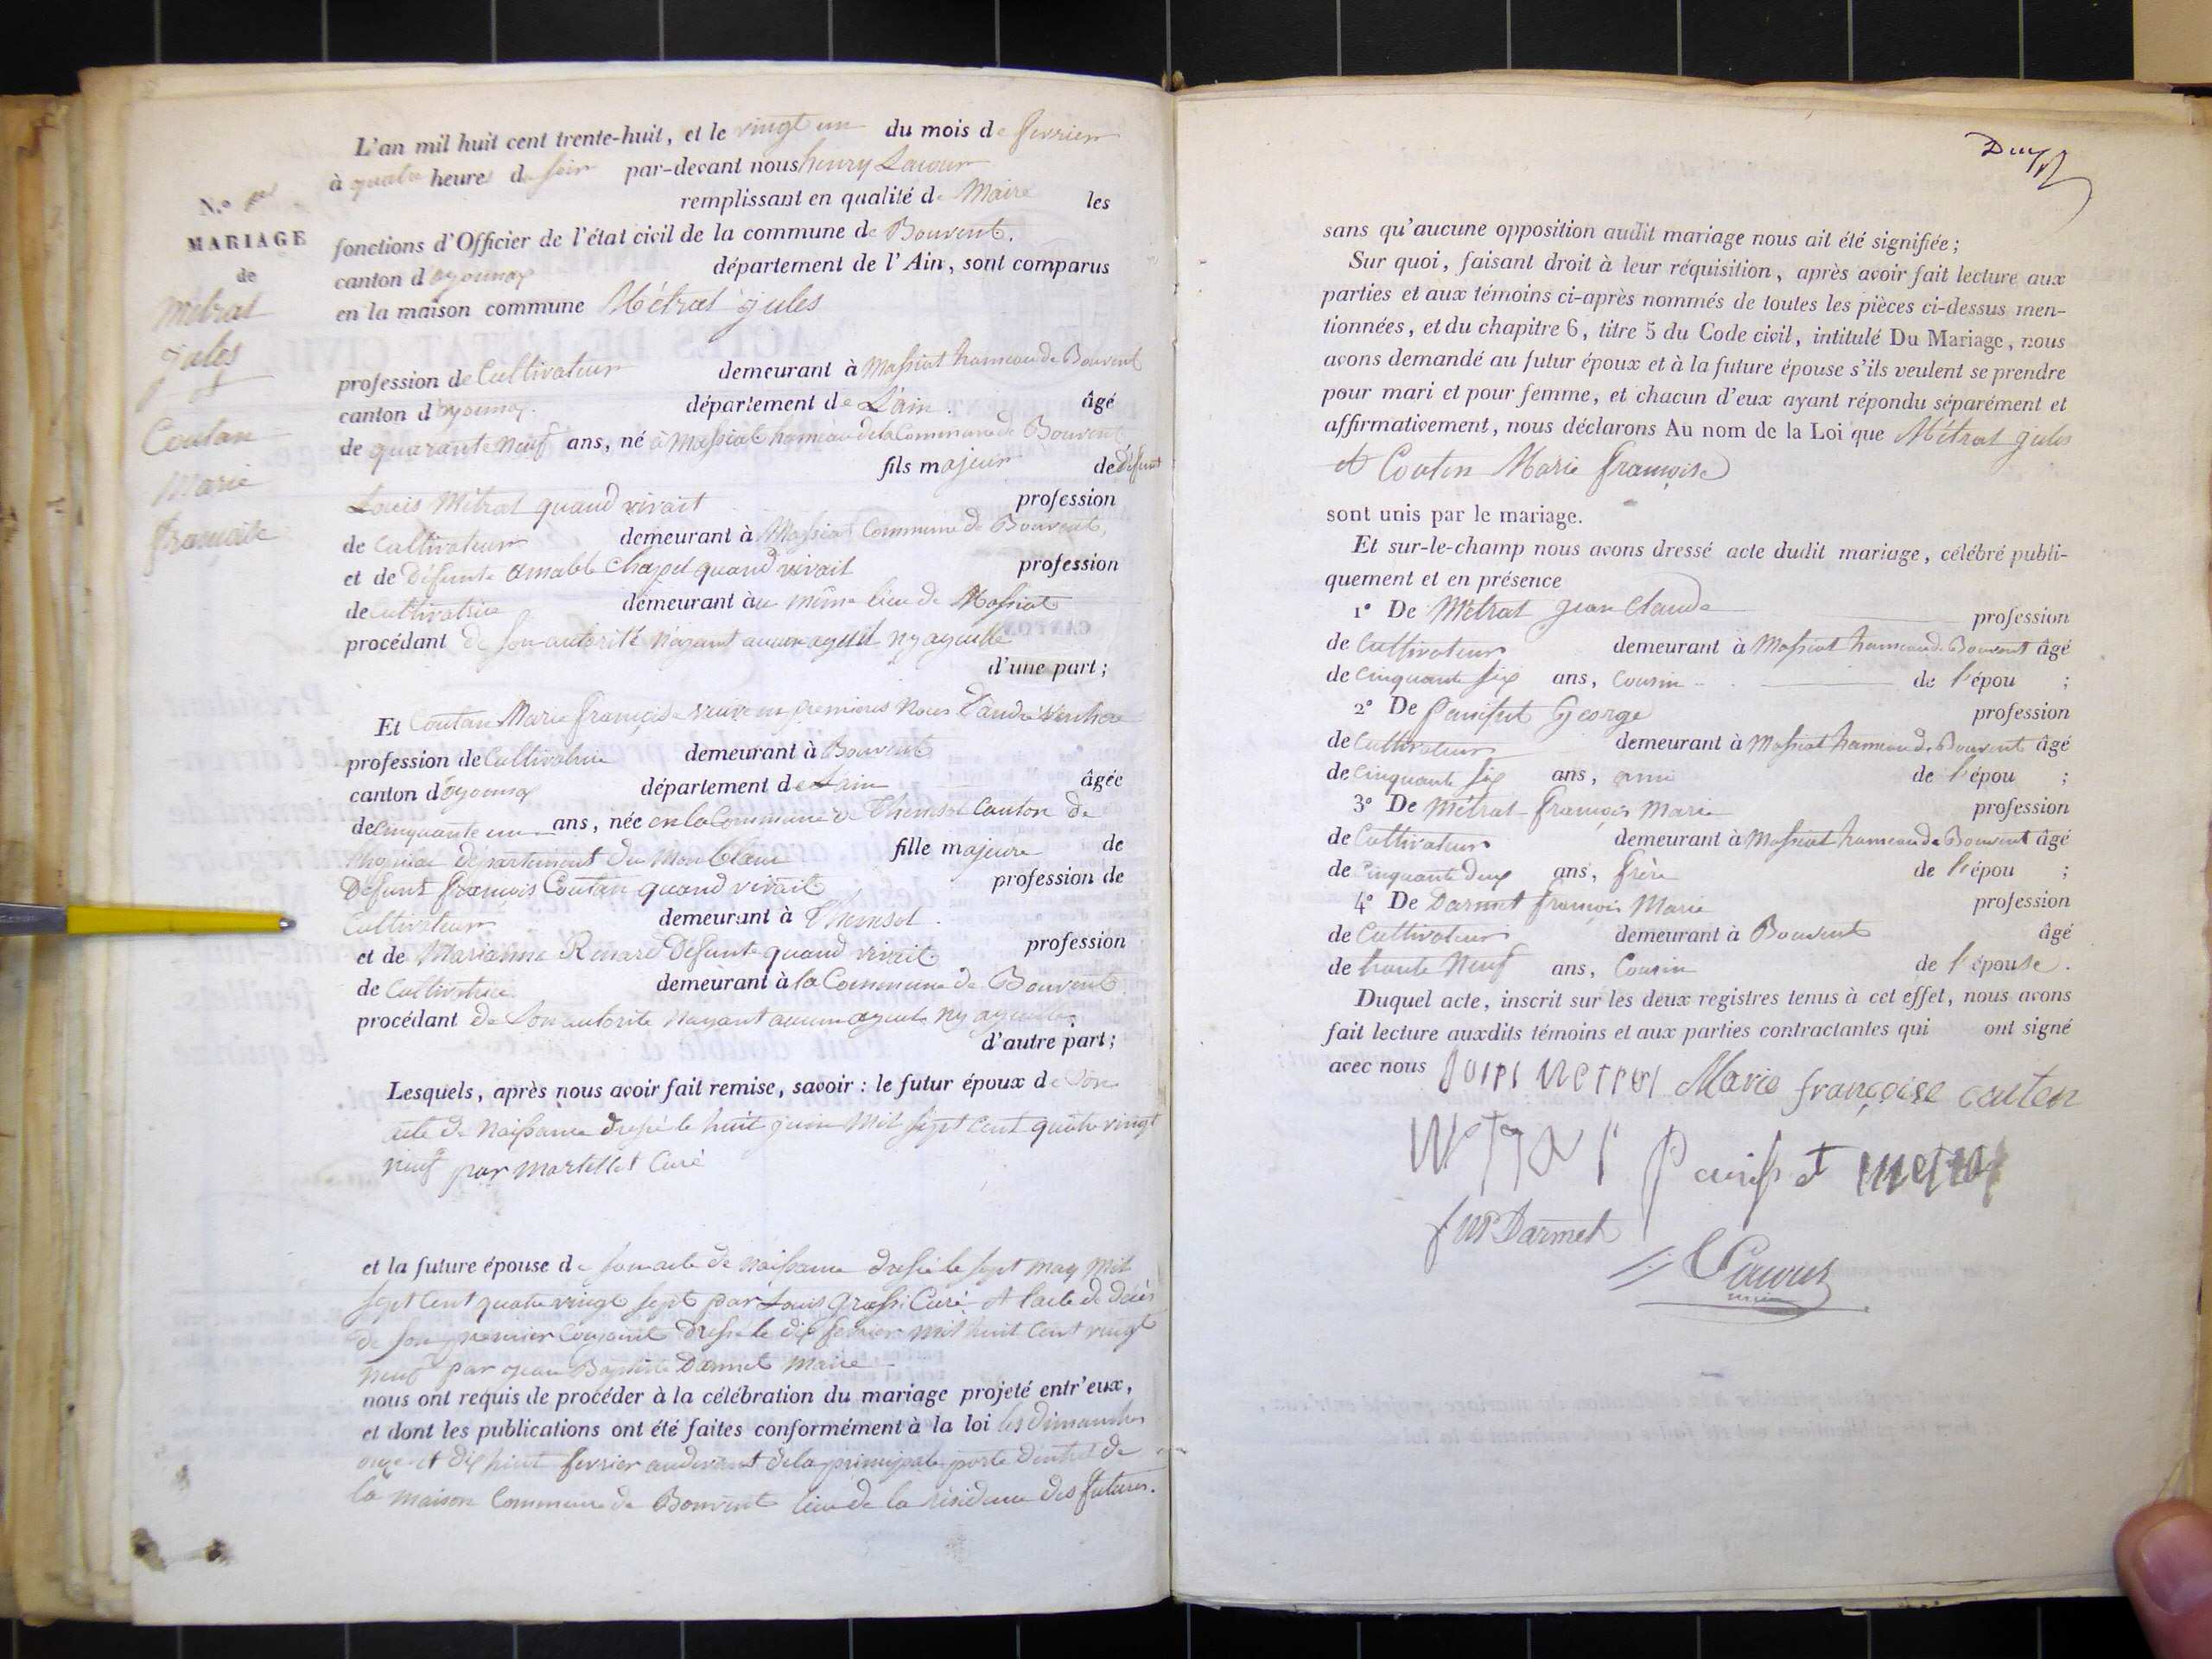 L'an mil huit cent trente-huit, et le vingt un du mois de fevrier
à quatre heures du soir par-devant nous henry Lacour
remplissant en qualité de Maire les
fonctions d'Officier de l'état civil de la commune de Bouvent.
canton d'oyonnax département de l'Ain, sont comparus
en la maison commune Métrat jules
N.º 1er
MARIAGE
de
Métrat
jules
et
Coutan
Marie
françoise
profession de Cultivateur demeurant à Massiat hameau de Bouvent
canton d'oyonnax département de L'ain. âgé
de quarante neuf ans, né à Massiat hameau de la Commune de Bouvent
fils majeur de défunt
Louis Métrat quand vivait profession
de Cultivateur demeurant à Massiat Commune de Bouvent
et de défunte amable Chapel quand vivait profession
de Cultivatrice demeurant au même lieu de Massiat
procédant de son autorité n'ayant aucun ayeul ny ayeulle
d'une part;
Et Coutan Marie françoise veuve en premieres Noces d'andré
profession de Cultivatrice demeurant à Bouvent
canton d'oyonnax département de Lain âgée
de cinquante un ans, née en la Commune de Canton de
département du Mon blanc fille majeure de
Defunt françois Coutan quand vivait profession de
Cultivateur demeurant à
et de Marianne Renard Defunte quand vivait profession
de Cultivatrice demeurant à la Commune de Bouvent
procédant de Son autorite Nayant aucun ayeul ny ayeulle
d'autre part;
Lesquels, après nous avoir fait remise, savoir : le futur époux de Son
acte de Naissance dressé le huit juin Mil sept cent quatre vingt
neuf par Martellet Curé
et la future épouse de son acte de Naissance dressé le sept may mil
sept Cent quatre vingt sept par Louis Grassi Curé et l'acte de décès
de son premier Conjoint dressé le dix fevrier mil huit Cent vingt
neuf par jean Baptiste Darmet Maire
nous ont requis de procéder à la célébration du mariage projeté entr'eux,
et dont les publications ont été faites conformément à la loi les dimanches
onze et dix huit fevrier audevant de la principale porte d'entrée de
la maison Commune de Bouvent lieu de la résidence des futures.
sans qu'aucune opposition audit mariage nous ait été signifiée;
Sur quoi, faisant droit à leur réquisition, après avoir fait lecture aux
parties et aux témoins ci-après nommés de toutes les pièces ci-dessus men-
tionnées, et du chapitre 6, titre 5 du Code civil, intitulé Du Mariage, nous
avons demandé au futur époux et à la future épouse s'ils veulent se prendre
pour mari et pour femme, et chacun d'eux ayant répondu séparément et
affirmativement, nous déclarons Au nom de la Loi que Métrat jules
et Couten Marie françoise
sont unis par le mariage.
Et sur-le-champ nous avons dressé acte dudit mariage, célébré publi-
quement et en présence
1º De Métrat jean Claude profession
de Cultivateur demeurant à Massiat hameau de Bouvent âgé
de Cinquante six ans, Cousin de l'épou ;
2º De Panifet George profession
de Cultivateur demeurant à Massiat hameau de Bouvent âgé
de cinquante six ans, ami de l'épou ;
3º De Métrat françois Marie profession
de Cultivateur demeurant à Massiat hameau de Bouvent âgé
de Cinquante deux ans, frère de l'épou ;
4º De Darmet françois Marie profession
de Cultivateur demeurant à Bouvent âgé
de trente Neuf ans, Cousin de l'épouse.
Duquel acte, inscrit sur les deux registres tenus à cet effet, nous avons
fait lecture auxdits témoins et aux parties contractantes qui ont signé
avec nous Marie françoise cuten
metrat
f m Darmet